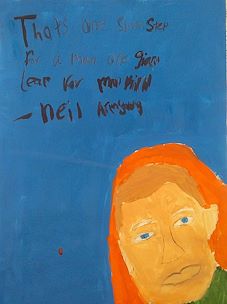 Thats one Small Step
for a man one giant
leap for mankind
- neil Armstrong